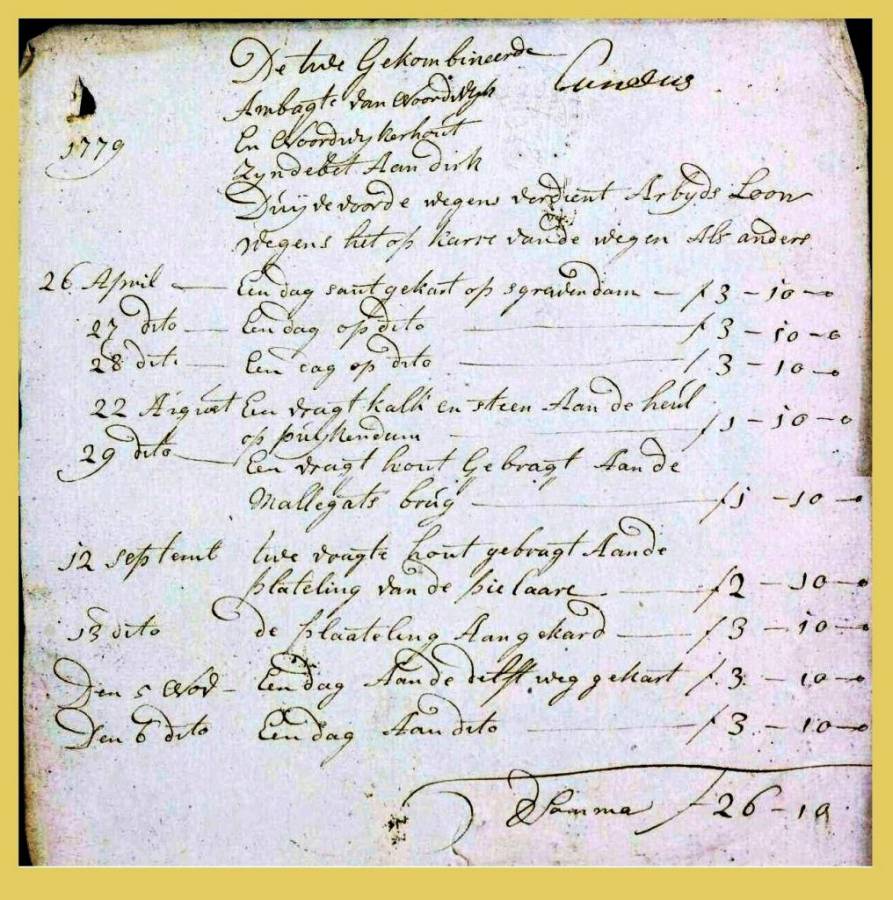 De twe Gekombineerde
Ambagte van Noordwyk
1779 En Noordwykerhout
Zyn debet Aan dirk
Duyvevoorde wegens verdient Arbyds Loon
wegens het op karre vande wegen Als anders
26 April Een dag sant gekart op sgravendam f 3 - 10 - 0
27 dito Een dag op dito f 3 - 10 - 0
28 dito Een dag op dito f 3 - 10 - 0
22 August Een vragt kalk en steen Aan de heul
op puykendam f 1 - 10 - 0
29 dito Een vragt hout Gebragt Aan de
Mallegats brug f 1 - 10 - 0
12 septemt twe vragte hout gebragt Aande
plateling van de pielaare f 2 - 10 - 0
13 dito de plaateling Aangekard f 3 - 10 - 0
Den 5 Nov Een dag Aan de delft weg gekart f 3 - 10 - 0
Den 6 dito Een dag Aan dito f 3 - 10 - 0
Somma f 26 - 10